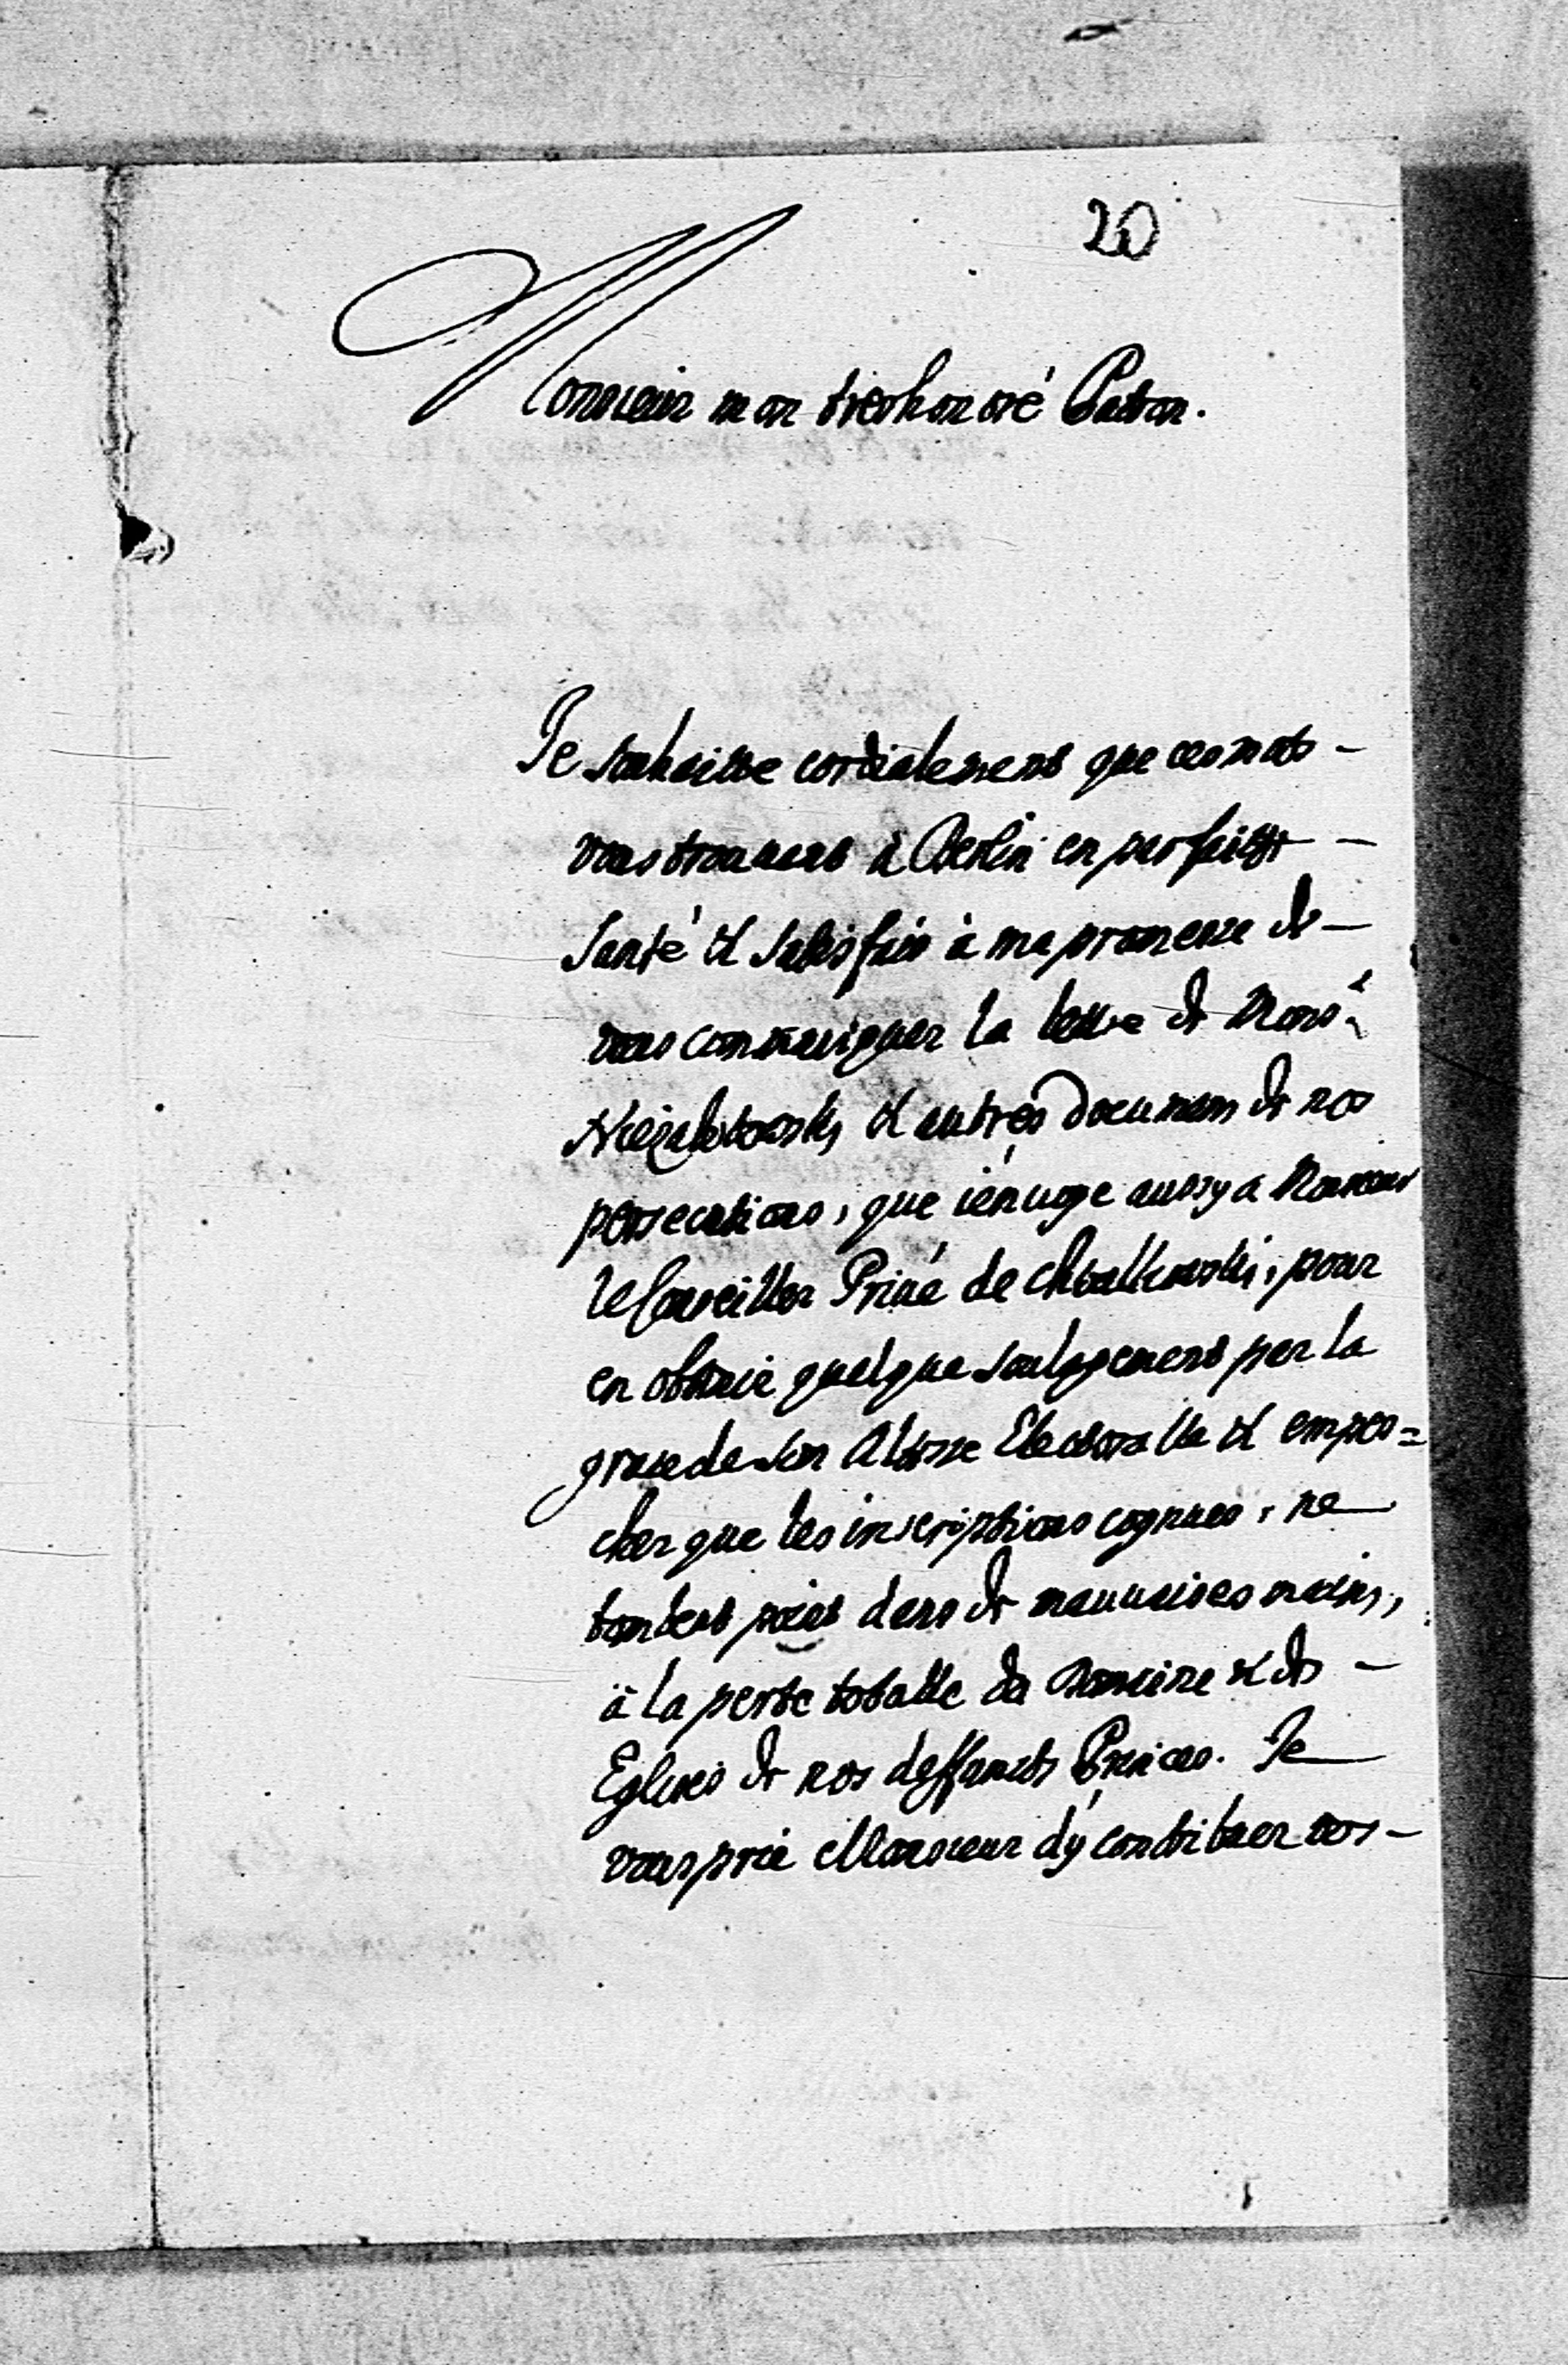 20
Monsieur mon treshonoré Patron.
Je souhaitte cordialement que ces mots -
vous trouvent à Berlin en parfaitte -
Santé et satisfais à ma promesse de -
vous communiquer la lettre de Mons.r
Niezabitowski, et autres documens de nos
persecutions, que i'enuoye aussy a Monsieur
le Conseiller Priué de Chwalkowski, pour
en obtenir quelque soulagement par la
grace de Son Altesse Electoralle et empes=
cher que les inscriptions cognues, ne
tombent point dans de mauuaises mains,
à la perte totalle du Domaine et des -
Eglises de nos deffuncts Princes. Je
vous prie Monsieur d'y contribuer vos -